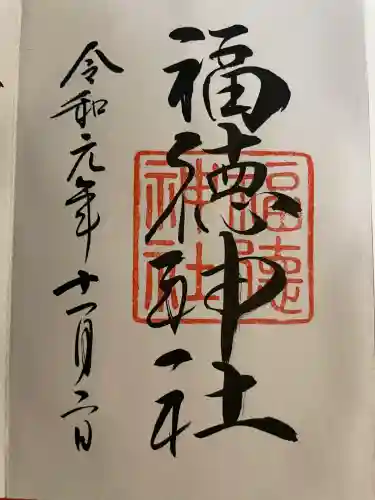 福徳神社
福徳
神社
令和元年十一月二日